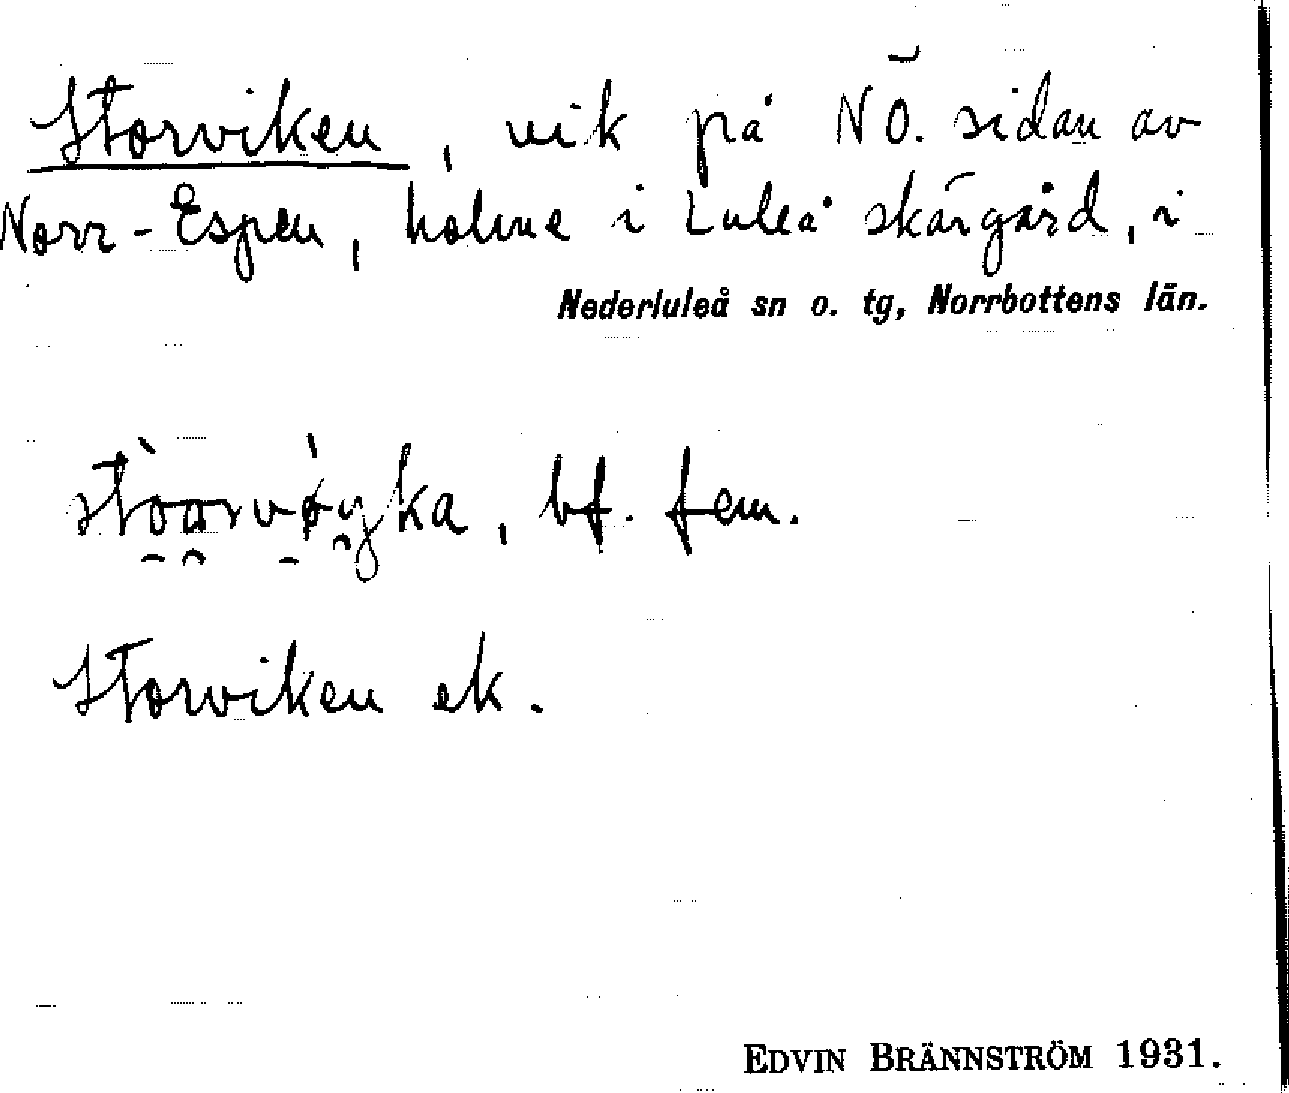 Storviken, vik på NÖ. sidan av
Norr-Espen, holme i Luleå skärgård, i
Nederluleå sn o. tg, Norrbottens län.
stòarvǿyka, bf. fem.
Storviken ek.
EDVIN BRÄNNSTRÖM 1931.